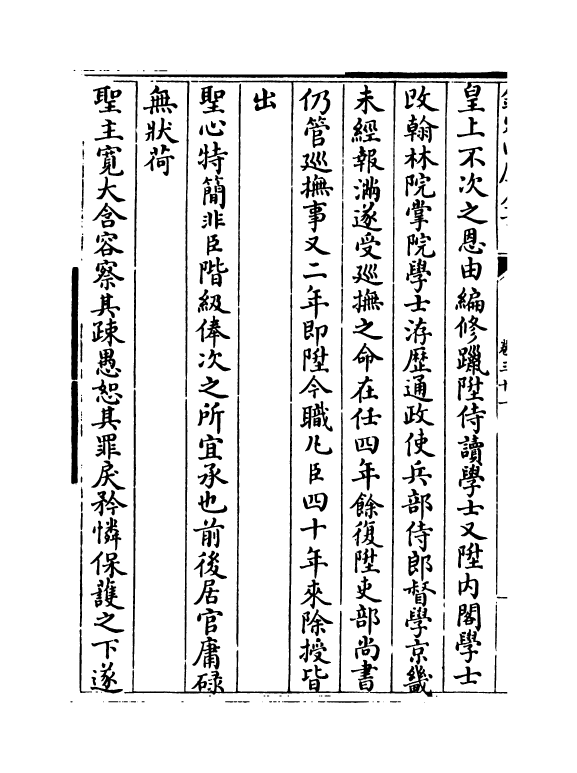 皇上不次之恩由編修躐陞侍讀學士又陞内閣學士
改翰林院掌院學士洊歴通政使兵部侍郎督學京畿
未經報滿遂受廵撫之命在任四年餘復陞吏部尚書
仍管廵撫事又二年即陞今職凢臣四十年來除授皆
出
聖心特簡非臣階級俸次之所宜承也前後居官庸碌
無狀荷
聖主寛大含容察其疎愚恕其罪戾矜憐保護之下遂
卷三十一